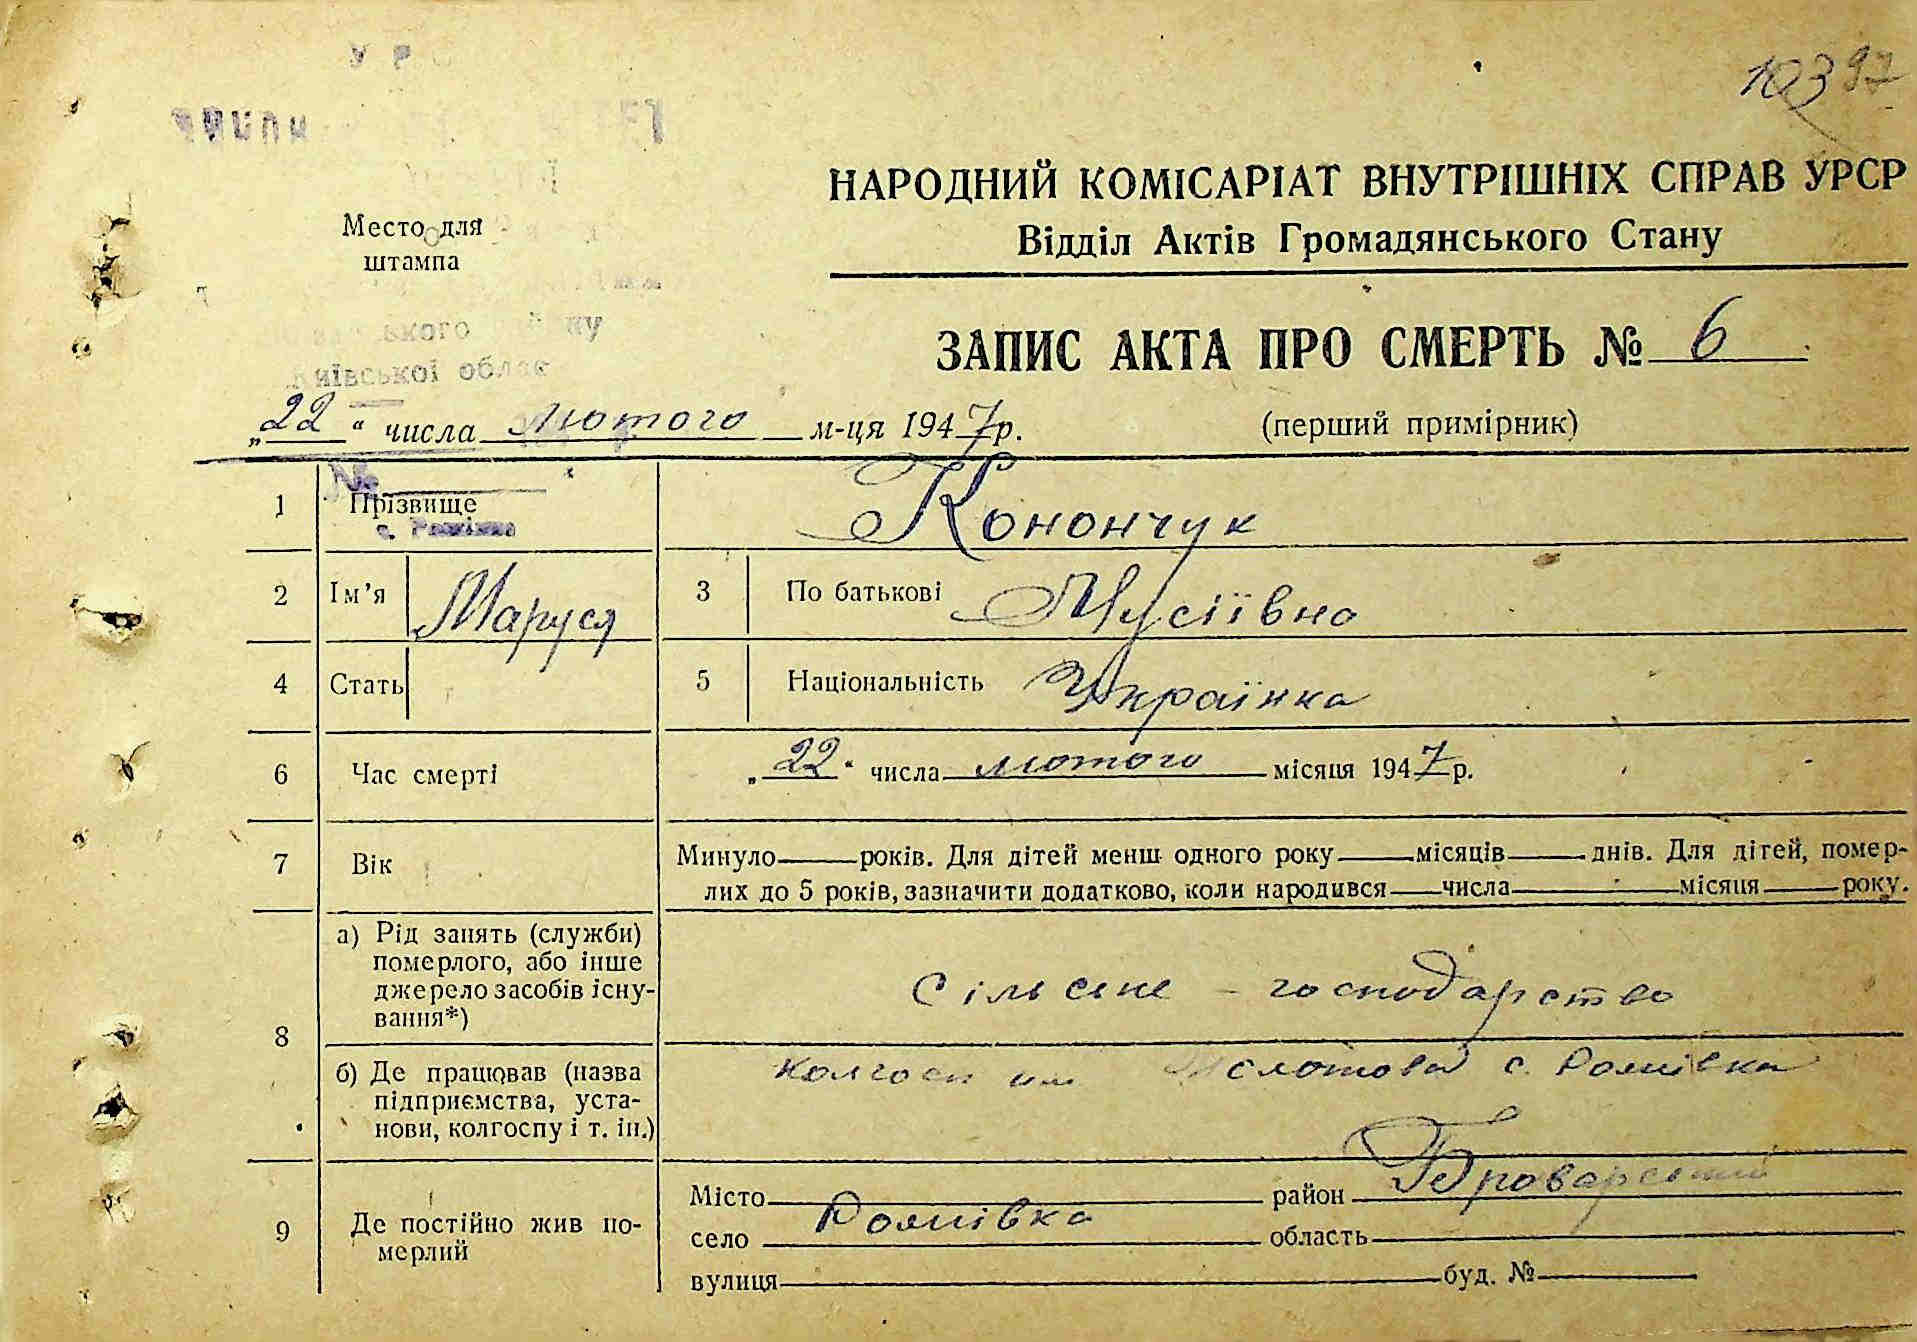 У Р
10397
НАРОДНИЙ КОМІСАРІАТ ВНУТРІШНІХ СПРАВ УРСР
Відділ Актів Громадянського Стану
Место для
штампа
ського району
Київської облас
ЗАПИС АКТА ПРО СМЕРТЬ № 6
„22“ числа лютого м-ця 1947 р.
(перший примірник)
№
1 Прізвище Конончук
с.
2 Ім’я Маруся 3 По батькові Мусіївна
4 Стать 5 Національність Українка
6 Час смерті „22“ числа лютого місяця 1947 р.
7 Вік Минуло років. Для дітей менш одного року місяців днів. Для дітей, помер-
лих до 5 років, зазначити додатково, коли народився числа місяця року.
8 а) Рід занять (служби)
померлого, або інше
джерело засобів існу-
вання*)
Сільське - господарство
б) Де працював (назва
підприємства, уста-
нови, колгоспу і т. ін.)
колгосп им Молотова с.
9 Де постійно жив по-
мерлий
Місто район Броварський
село область
вулиця буд. №